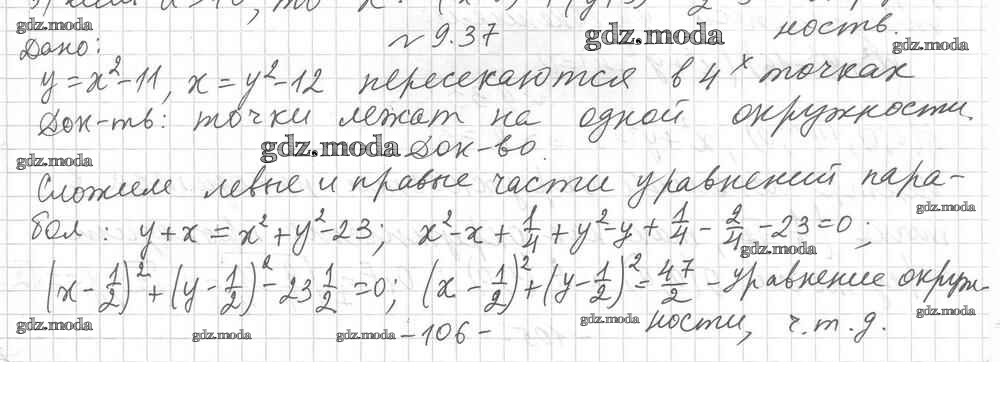 gdz.moda ность.
Дано: № 9.37 gdz.moda gdz.moda
y=x²-11, x=y²-12 пересекаются в 4х точках
Док-ть: точки лежат на одной окружности.
gdz.moda gdz.moda Док-во.
Сложим левые и правые части уравнений пара-
gdz.moda
бол: y+x=x²+y²-23; x²-x+1/4+y²-y+1/4-2/4-23=0;
gdz.moda
(x-1/2)²+(y-1/2)²-23 1/2=0; (x-1/2)²+(y-1/2)²=47/2 - уравнение окруж-
gdz.moda gdz.moda gdz.moda -106- gdz.moda ности, ч.т.д. gdz.moda